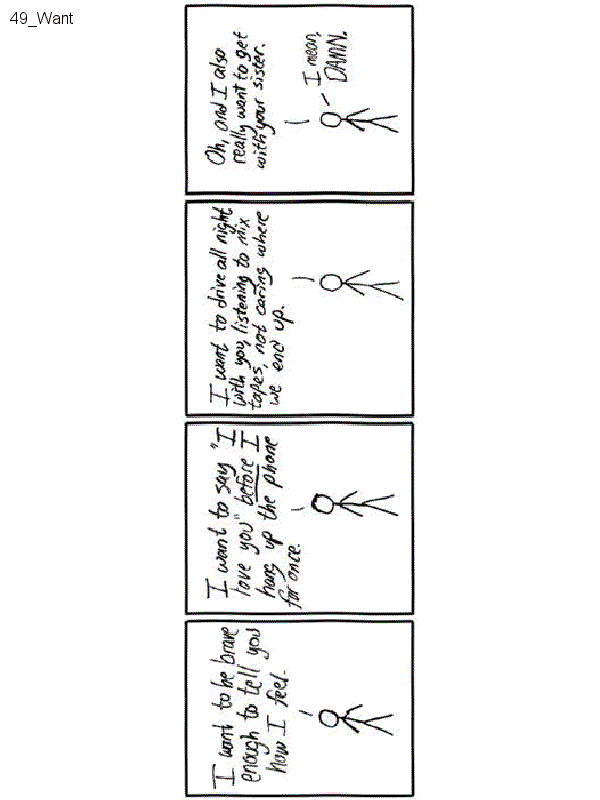 49_Want
I want to be brave
enough to tell you
how I feel.
I want to say "I
love you" before I
hang up the phone
for once.
I want to drive all night
with you, listening to mix
tapes, not caring where
we end up.
Oh, and I also
really want to get
with your sister.
I mean,
DAMN.